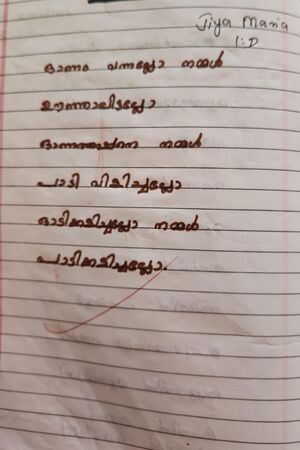 Jiya Maria
1:D
ഓണം വന്നല്ലോ നമ്മൾ
ഊഞ്ഞാലിട്ടല്ലോ
ഓണത്തപ്പനെ നമ്മൾ
പാടി വിളിച്ചല്ലോ
ഓടിക്കളിച്ചല്ലോ നമ്മൾ
പാടിക്കളിച്ചല്ലോ.